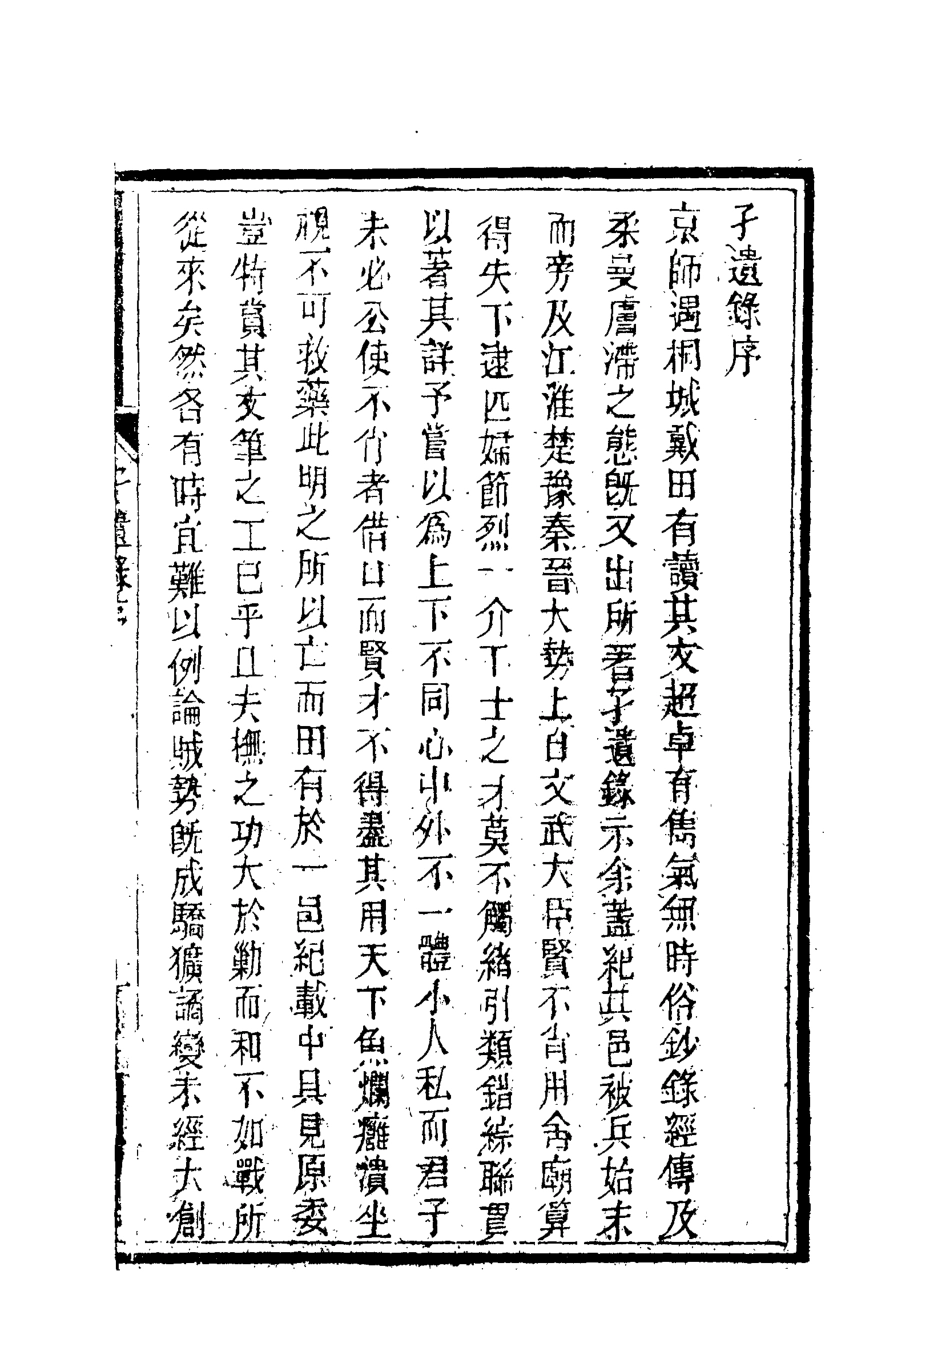 孑遺錄序
京師遇桐城戴田有讀其文超卓有雋氣無時俗鈔錄經傳及
柔曼膚滯之態旣又出所著孑遺錄示余蓋紀其邑被兵始末
而旁及江淮楚豫秦晉大勢上自文武大臣賢不肖用舍廟算
得失下逮匹婦節烈一介下士之才莫不觸緒引類錯綜聯貫
以著其詳予嘗以爲上下不同心中外不一體小人私而君子
未必公使不肖者借口而賢才不得盡其用天下魚爛癰潰坐
視不可救藥此明之所以亡而田有於一邑紀載中具見原委
豈特賞其文筆之工已乎且夫撫之功大於勦而和不如戰所
從來矣然各有時宜難以例論賊勢旣成驕獷譎變未經大創
孑遺錄序